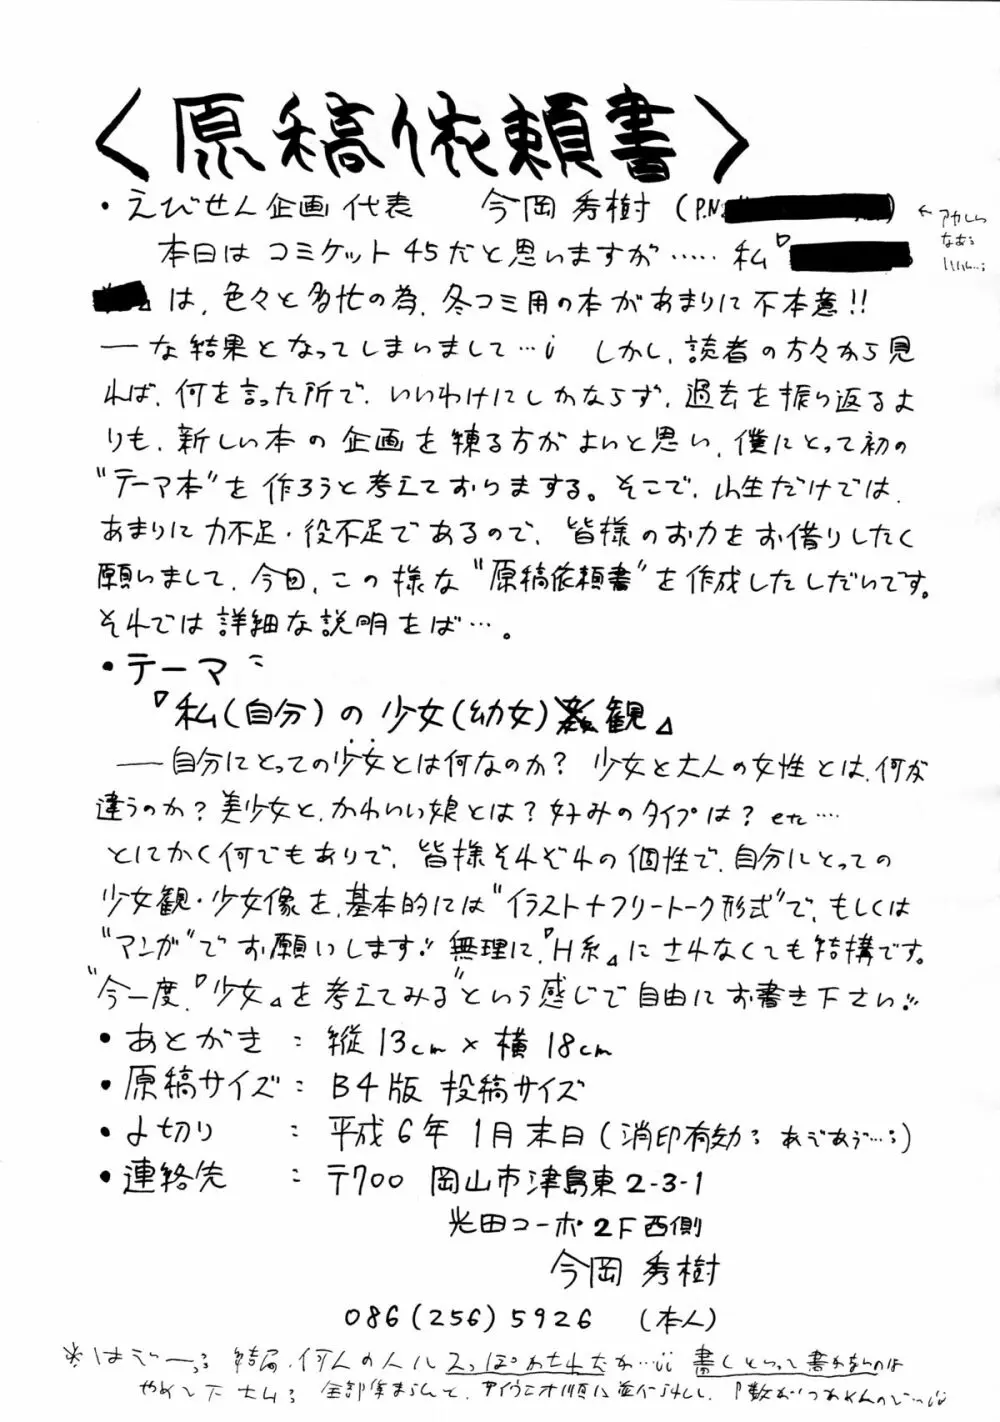 〈原稿依頼書〉
・えびせん企画代表 今岡秀樹(P.N.
本日はコミケット45だと思いますが…… 私『
は、色々と多忙の為、冬コミ用の本があまりに不本意!!
―な結果となってしまいまして…; しかし、読者の方々から見
れば、何を言った所で、いいわけにしかならず、過去を振り返るよ
りも、新しい本の企画を練る方がよいと思い、僕にとって初の
"テーマ本"を作ろうと考えておりまする。そこで、小生だけでは、
あまりに力不足・役不足であるので、皆様のお力をお借りしたく
願いまして、今回、この様な"原稿依頼書"を作成したしだいです。
それでは詳細な説明をば…。
・テーマ:
『私(自分)の少女(幼女)観』
――自分にとっての少女とは何なのか? 少女と大人の女性とは、何が
違うのか? 美少女と、かわいい娘とは? 好みのタイプは? etc……
とにかく何でもありで、皆様それぞれの個性で、自分にとっての
少女観・少女像を、基本的には"イラスト+フリートーク形式"で、もしくは
"マンガ"でお願いします!! 無理に、『H系』にされなくても結構です。
"今一度、『少女』を考えてみる"という感じで自由にお書き下さい!!
・あとがき : 縦13cm×横18cm
・原稿サイズ : B4版 投稿サイズ
・〆切り : 平成6年1月末日(消印有効; あぢあぢ…;)
・連絡先 : 〒700 岡山市津島東2-3-1
光田コーポ2F西側
今岡 秀樹
086(256)5926 (本人)
結局、何人の人に
書くといって書かないのは
やめて下さい;